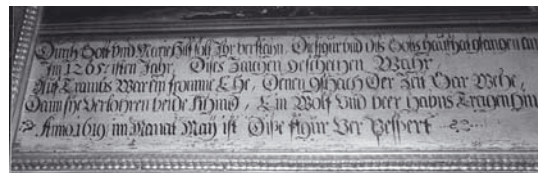 Durch Gott vnd Marie Hilf solt Ihr verstehn, Die figur vnd dis Gots hauß hat gfangen an
Im 1265: isten Jahr, Dises Zaichen geschehen Wahr
Auß Erambs War ein fromme Ehe, Denen gschach Der Zeit Gar Wehe,
Dann sie Verlohren beide Khind, Ein Wolf Vnd beer habns Tragen hin
Anno 1619 im Monat Maÿ ist Diße figur Ver Pessert